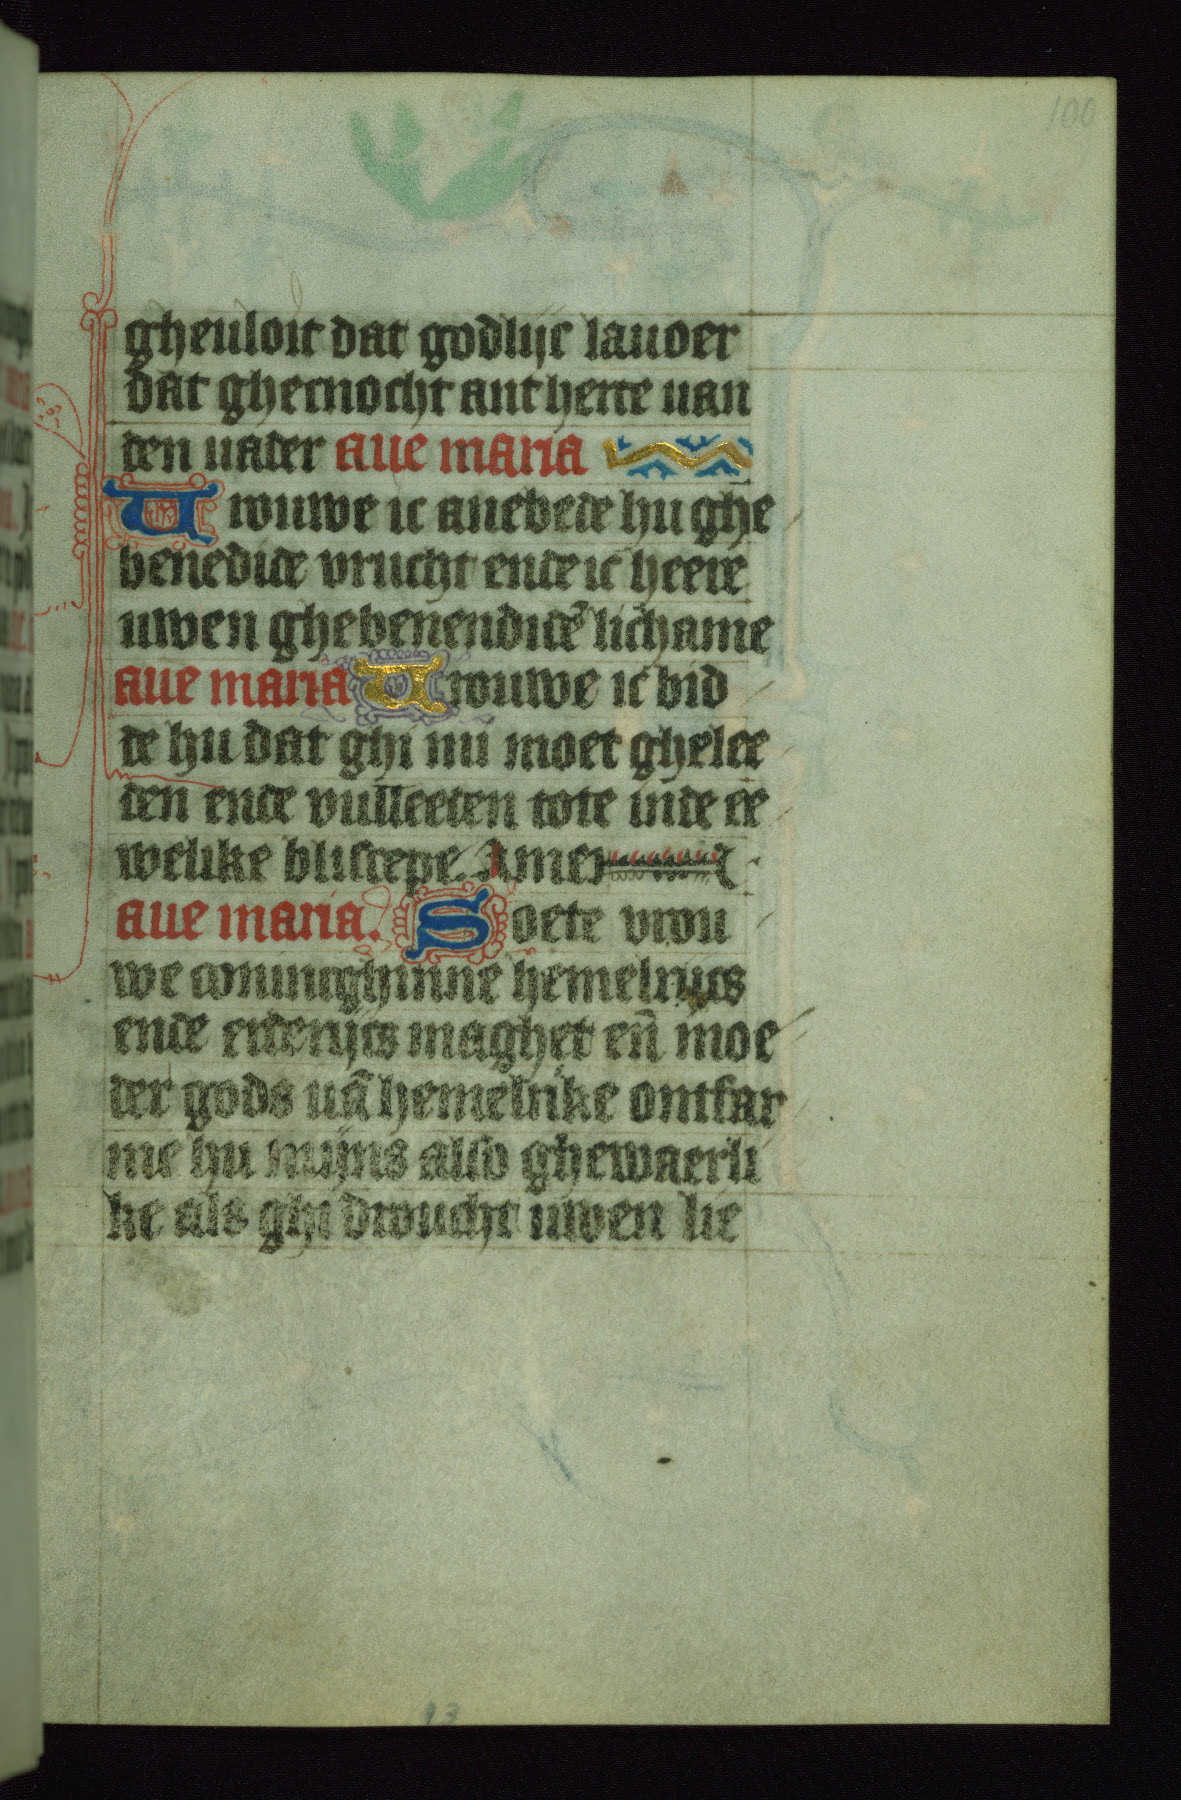 100
gheuloit dat godlijc lauoer
dat ghecnocht ant herte uan
den uader aue maria
Vrouwe ic anebede hu ghe
benedide vrucht ende ic heere
uwen ghebenendidẽ lichame
aue maria Vrouwe ic bid
de hu dat ghi mi moet ghelee
den ende vulleeden tote inde ee
welike bliscepe. Amen
aue maria. Soete vrou
we coninighinne hemelrijcs
ende erderijcs maghet eñ moe
der gods uã hemelrike ontfar
me hu mijns also ghewaerli
ke als ghi droucht uwen lie
13